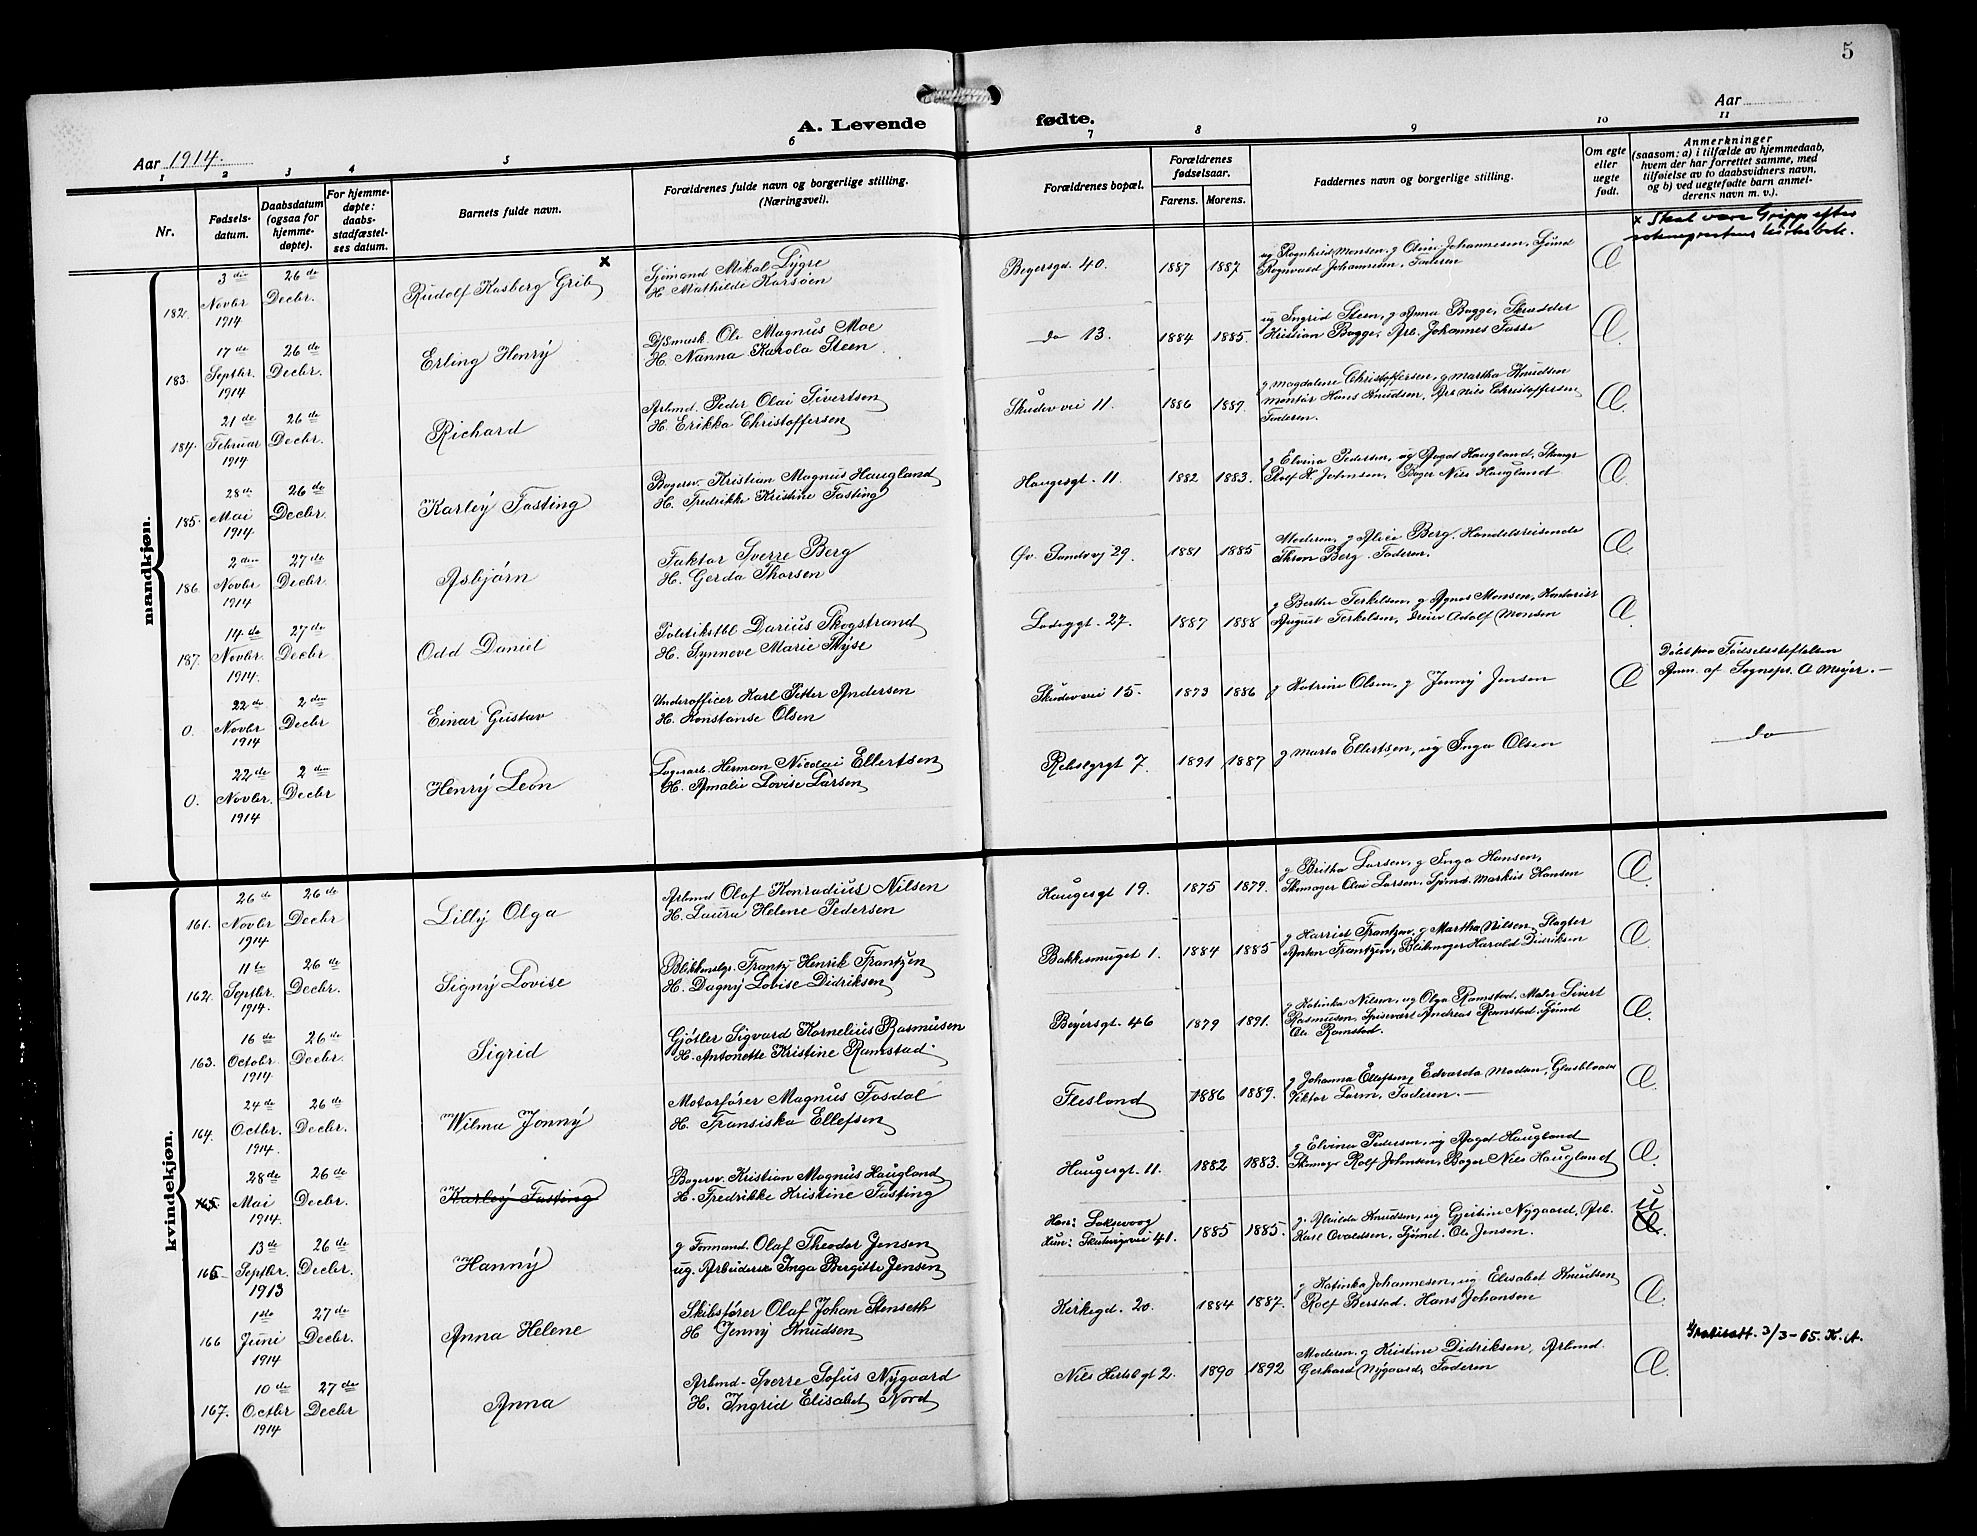 5
A. Levende fødte.
Aar 1914.
Aar
1 2 3 4 5 6 7 8 9 10 11
Nr.
Fødsels-
datum.
Daabsdatum
(ogsaa for
hjemme-
døpte).
For hjemme-
døpte:
daabs-
stadfæstel-
ses datum.
Barnets fulde navn.
Forældrenes fulde navn og borgerlige stilling.
(Næringsvei).
Forældrenes bopæl.
Forældrenes
fødselsaar.
Farens. Morens.
Faddernes navn og borgerlige stilling.
Om egte
eller
uegte
født.
Anmerkninger
(saasom: a) i tilfælde av hjemmedaab,
hvem der har forrettet samme, med
tilføielse av to daabsvidners navn,
og b) ved uegtefødte barn anmel-
derens navn m. v.).
x Skal være Gripp efter
mandkjøn.
182. 3die Novbr 1914 26de Decbr. Rudolf Kasberg Grib x
Sjømand Mikal Lygre
H. Mathilde Karsøen
Beyersgd. 40. 1887 1887
ug Ragnhild Monsen, g Oline Johannesen, Sjømd
Ragnvald Johannesen, Faderen
Æ
183. 17de Septbr. 1914 26de Decbr. Erling Henry
D/Smask. Ole Magnus Moe
H. Nanna Karola Steen
do 13. 1884 1885.
ug Ingrid Steen, g Anna Bagge, Skrædder
Kristian Bagge, Arb. Johannes Fasse
Æ.
184. 21de Februar 1914 26de Decbr. Richard
Arbmd. Peder Olai Sivertsen
H. Erikka Christoffersen
Skudevvei 11. 1886 1889.
g Magdalene Christoffersen, g Martha Knudsen
Montør Hans Knudsen, Arb Nils Christoffersen
Faderen.
Æ.
185. 28de Mai 1914 26de Decbr. Karley Fasting
Bagersv. Kristian Magnus Haugland
H. Fredrikke Kristine Fasting
Haugesgt. 11. 1882 1883.
g Elvina Pedersen, ug Aagot Haugland,
Rolf K. Johnsen, Bager Nils Haugland
Æ.
186. 2den Novbr 1914 27de Decbr. Asbjørn
Faktor Sverre Berg
H. Gerda Thorsen
Øv. Sandvvj 29. 1881 1885
Moderen, g Alice Berg. Handelsreisende
Thron Berg. Faderen.
Æ
187. 14de Novbr. 1914. 27de Decbr Odd Daniel
Politikstbl Darius Skogstrand
H. Synneve Marie Thyse
Ladeggt. 27. 1887 1888
g Berthe Terkelsen, g Agnes Monsen, Kontorist
August Terkelsen, Dreier Adolf Monsen
Æ.
0. 22de Novbr 1914 2den Decbr Einar Gustav
Underofficer Karl Petter Andersen
H. Konstanse Olsen
Skudevvei 15. 1873 1886
g Katrine Olsen, g Jenny Jensen
Æ
Døbt paa Fødselsstiftelsen
Anm. af Sognepr. A Meyer.
0. 22de Novbr. 1914 2den Decbr Henry Leon
Lagerarb. Herman Nicolai Ellertsen
H. Amalie Lovise Larsen
Rebslgrgt 7. 1891 1887
g Marta Ellertsen, ug Inga Olsen
do
kvindekjøn.
161. 26de Novbr 1914 26de Decbr Lilly Olga
Arbmd Olaf Konradius Nilsen
H. Laura Helene Pedersen
Haugesgt 19. 1875 1879.
g Britha Larsen, g Inga Hansen,
Skmager Olai Larsen, Sjømd. Markus Hansen
Æ.
162. 11te Septbr. 1914. 26de Decbr. Signy Lovise
Blikkenslgr. Frantz Henrik Frantzen
H. Dagny Lovise Didriksen
Bakkesmuget 1. 1884 1885
g Harriet Frantzen, g Martha Nilsen, Slagter
Anton Frantzen, Blikmager Harald Didriksen
Æ.
163. 16de Octobr. 1914 26de Decbr. Sigrid
Gjøtler Sigvard Kornelius Rasmusen
H. Antonette Kristine Ramstad.
Beyersgt. 46 1879 1891.
g Katinka Nilsen, ug Olga Ramstad, Maler Sivert
Rasmussen, Spisevært Andreas Ramstad, Sjømd
Ole Ramstad.
Æ.
164. 24de Octbr. 1914. 26de Decbr. Wilma Jonny
Motorfører Magnus Fosdal
H. Fransiska Ellefsen
Flesland 1886 1889.
g Johanna Ellefsen, Edvarda Madsen, Glasblaaser
Viktor Larm, Faderen.
Æ.
165. 28de Mai 1914. 26de Decbr. Karley Fasting
Bagersv. Kristian Magnus Haugland
H. Fredrikke Kristine Fasting
Haugesgt. 11. 1882 1883.
g Elvina Pedersen, ug Aagot Haugland
Skmager Rolf Johnsen, Bager Nils Haugland
Æ.
165 13de Septbr. 1913 26de Decbr. Hanny
g Formand. Olaf Theodor Jensen
ug. Arbeiderske Inga Bergitte Jensen
Han: Laksevaag
Hun: Skutevigsvei 41. 1885 1885.
g. Alvilda Knudsen, ug Gjertine Nygaard, Arb.
Karl Osvaldsen, Sjømd. Ole Jensen.
U
Æ.
166 1ste Juni 1914 27de Decbr. Anna Helene
Skibsfører Olaf Johan Stenseth
H Jenny Knudsen
Kirkegd. 20. 1884 1887.
g Katinka Johannesen, ug Elisabet Knudsen
Rolf Berstad. Hans Johansen
Æ.
167. 10de Octbr 1914 27de Decbr Anna
Arbmd. Sverre Sofus Nygaard
H. Ingrid Elisabet Nord
Nils Hertsbgt 2. 1890 1892
Moderen, g Kristine Didriksen, Arbmd.
Gerhard Nygaard, Faderen
Æ.
3/3-65. K. A.